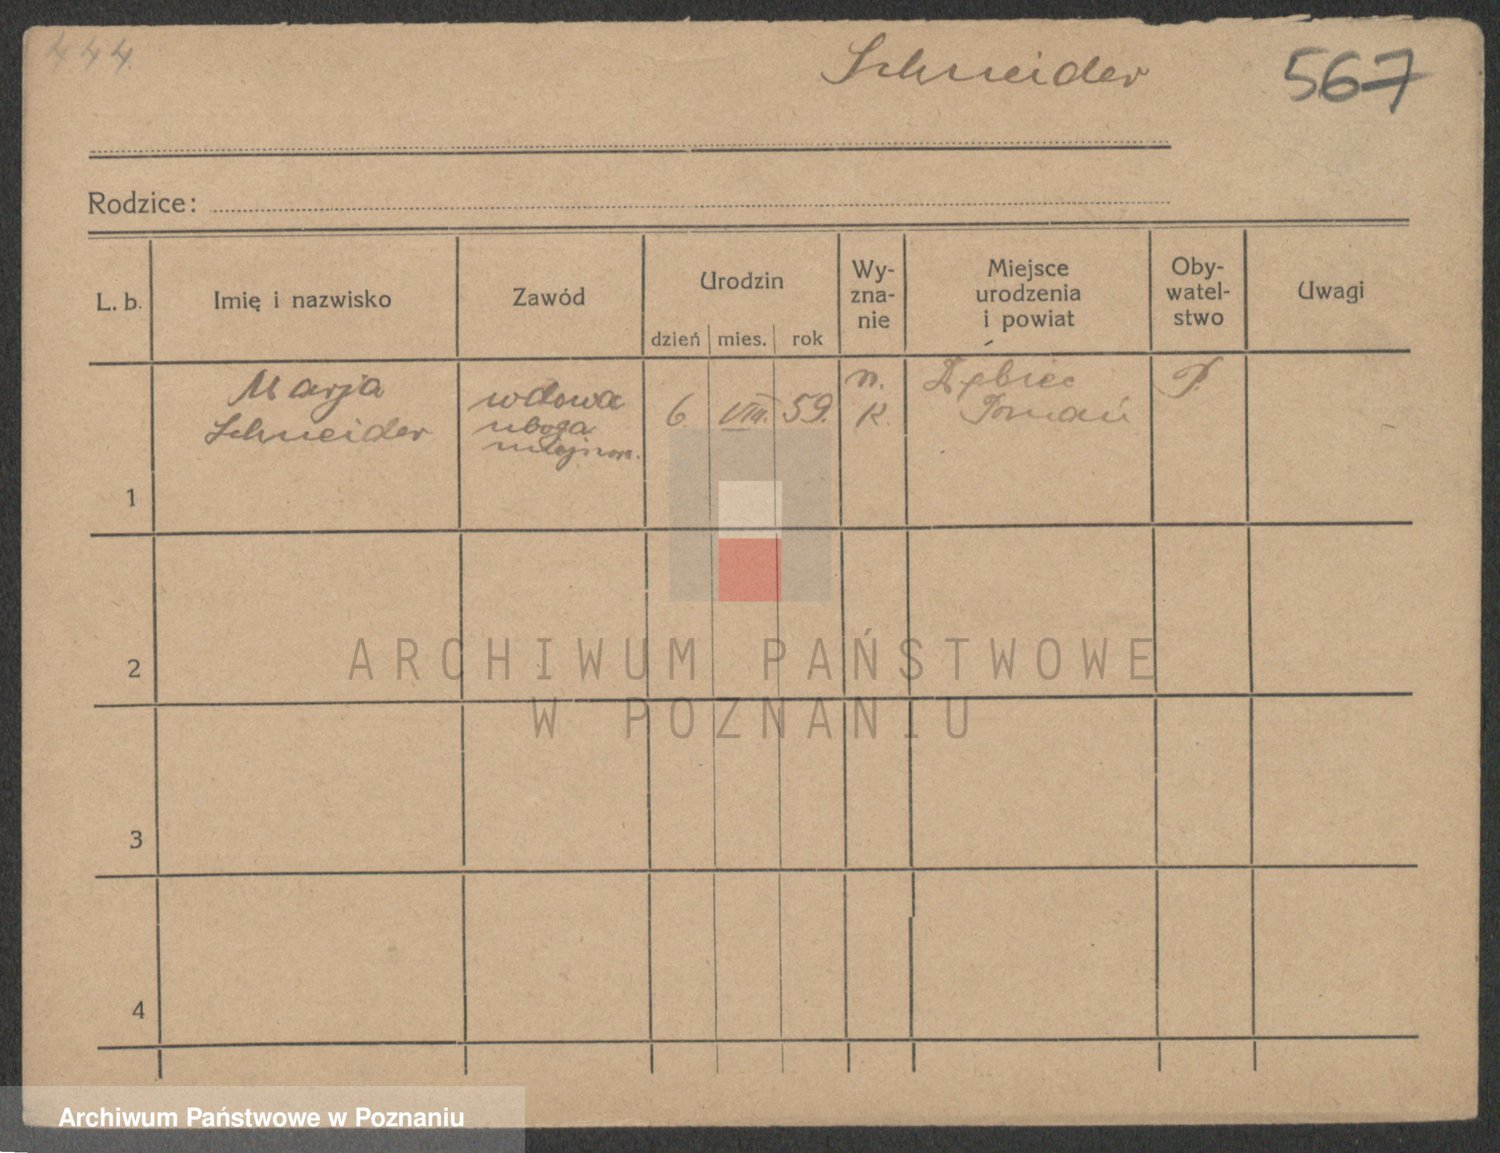 444.
Schneider
567
Rodzice:
L. b.
Imię i nazwisko
Zawód
Urodzin
dzień
mies.
rok
Wy-
zna-
nie
Miejsce
urodzenia
i powiat
Oby-
watel-
stwo
Uwagi
1
Marja
Schneider
wdowa
uboga
miejscow.
6
VIII.
59.
R.
K.
Dębiec
Poznań
P
2
3
4
ARCHIWUM PAŃSTWOWE
W POZNANIU
Archiwum Państwowe w Poznaniu